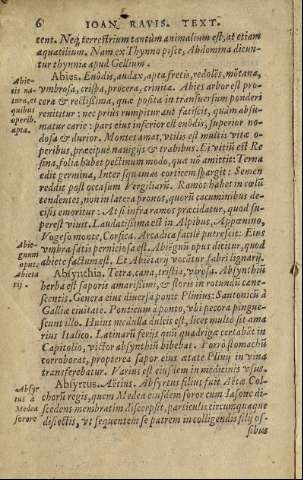 6 IOAN. RAVIS. TEXT.
tent. Neq; terrestrium tantùm animalium est, at etiam
aquatilium. Nam ex Thynno pisce, Abdomina dicun-
tur thynnia apud Gellium.
Abies. Enodis, audax, apta fretis, redolẽs, mõtana,
vmbrosa, crispa, procera, crinita. Abies arbor est pro
cera & rectissima, quæ posita in transuersum ponderi
renititur: nec priùs rumpitur ant fatiscit, quàm absu-
matur carie: pars eius inferior est enodis, superior no-
dosa & durior. Montes amat, vtilis est multis vitæ o-
peribus, præcipuè nauigijs & trabibus. Et vitiũ est Re
sina, folia habet pectinum modo, quæ nõ amittit: Tema
edit germina, Inter squamas corticem spargit: Semen
reddit post occasum Vergiliarũ. Ramos habet in cælũ
tendentes, non in latera pronos, quorũ cacuminibus de-
cisis emoritur: At si infra ramos præcidatur, quod su-
perest viuit. Laudatissima est in Alpibus, Appennino,
Vogeso monte, Corsica. Arcadica facilè putrescit. Eius
vmbra satis perniciosa est. Abiêgnũ opus dicitur, quod
abiete factum est. Et Abietarij vocãtur fabri lignarij.
Absynthia. Tetra, cana, tristia, virosa. Absynthiũ
herba est saporis amarissimi, & floris in rotundũ cane-
scentis. Genera eius diuersa ponit Plinius: Santonicũ à
Galliæ ciuitate. Ponticum à ponto, vbi pecora pingue-
scunt illo. Huius medulla dulcis est, licet multò sit ama
rius Italico. Latinarũ feriis cùm quadrigæ certabãt in
Capitolio, victor absynthiũ bibebat. Porrò stomachũ
corroborat, propterea sapor eius ætate Plinij in vina
transferebatur. Varius est eiusdem in medicinis vsus.
Absyrtus. Aëtius. Absyrtus filius fuit Aetæ Col-
chorũ regis, quem Medea eiusdem soror cum Iasone di-
scedens membratim discerpsit, particulis circunquaque
disiectis, vt sequentem se patrem in colligendis filij os-
sibus
Abie-
tis na-
tura, et
quibus
operib.
apta.
Abie-
gnum
opus
abieta
rij.
Absyr
tus à
Medea
sorore